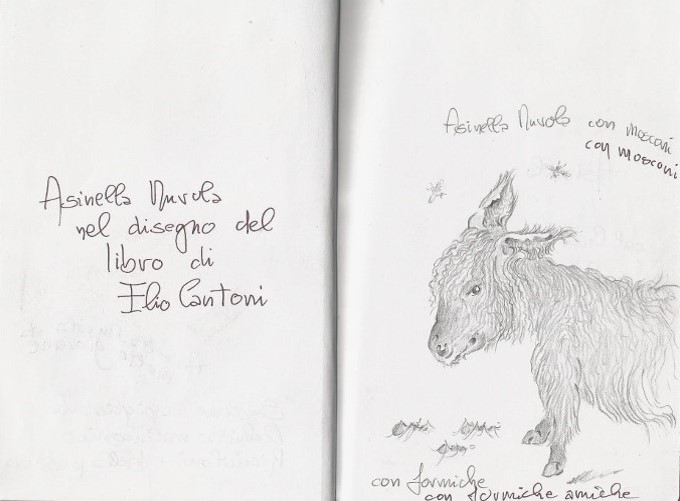 Asinella Nuvola
nel disegno del
libro di
Elio Cantoni
Asinella Nuvola con mosconi
con mosconi
con formiche
con formiche amiche